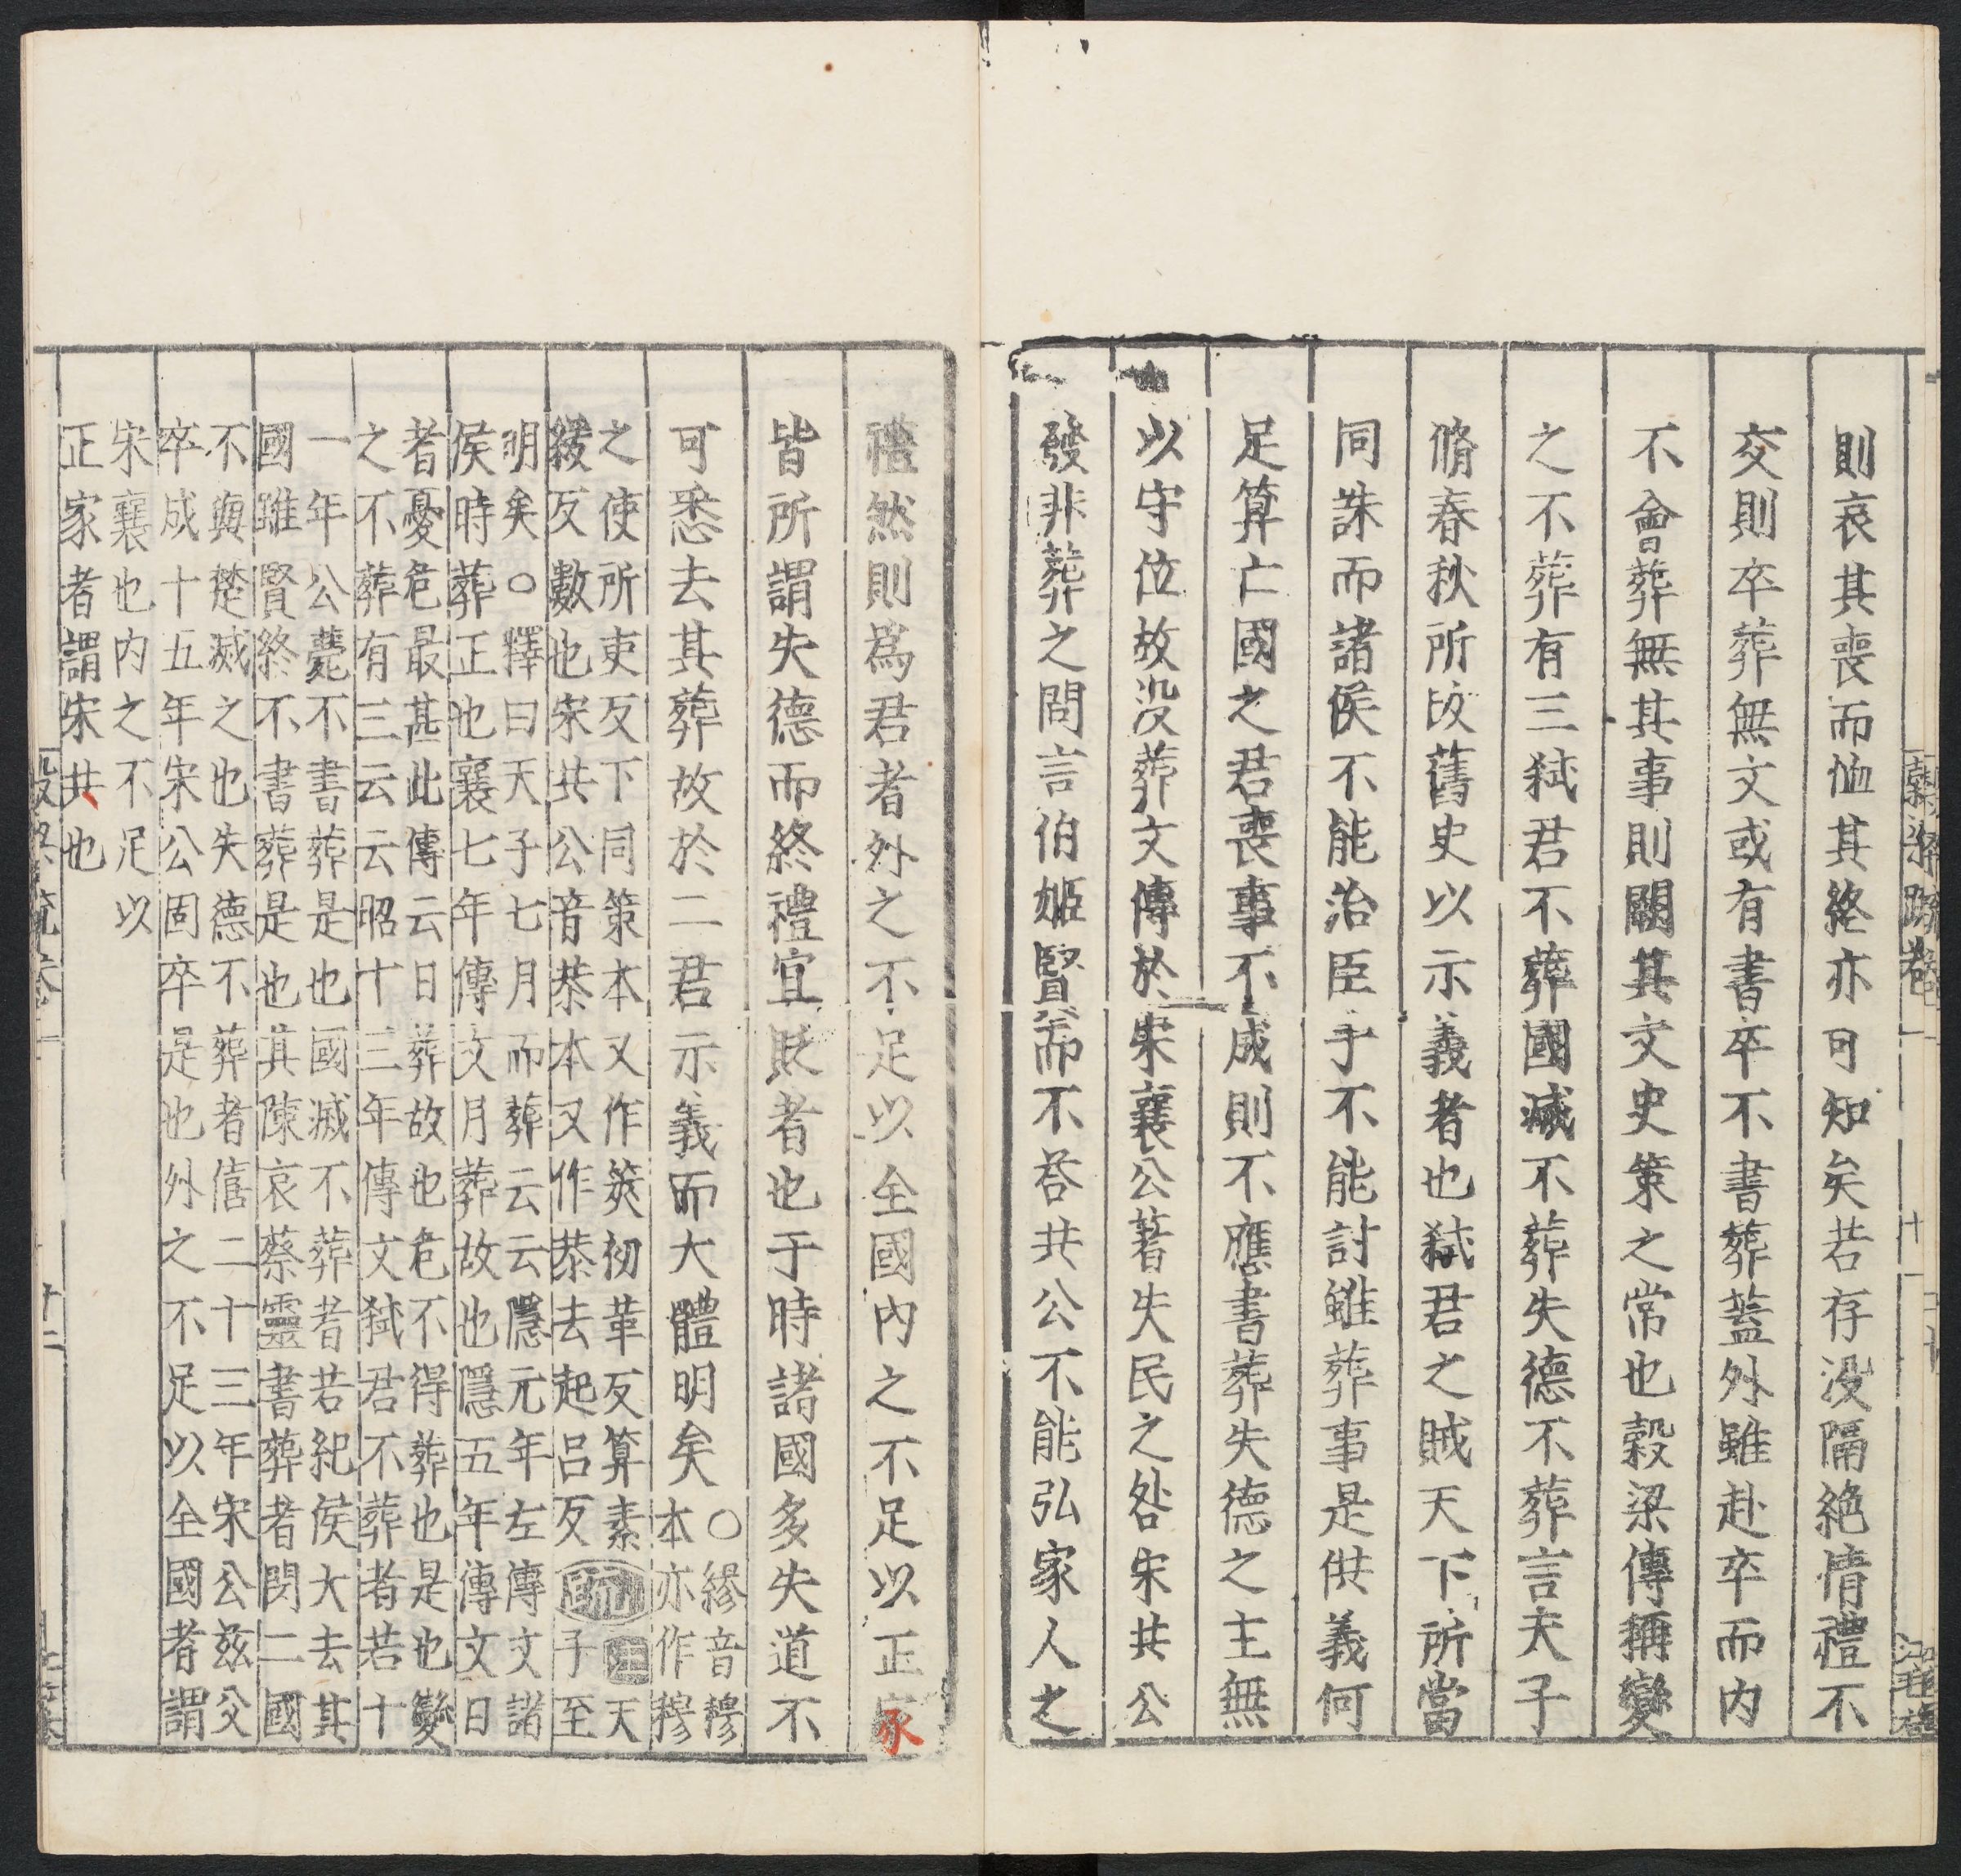 則哀其喪而恤其終亦可知矣若存没隔絶情禮不
交則卒葬無文或有書卒不書葬蓋外雖赴卒而内
不會葬無其事則闕其文史策之常也穀梁傳稱變
之不葬有三弑君不葬國滅不葬失德不葬言夫子
脩春秋所改舊史以示義者也弑君之賊天下所當
同誅而諸侯不能治臣子不能討雖葬事是供義何
足算亡國之君喪事不成則不應書葬失德之主無
以守位故没葬文傳於宋襄公著失民之咎宋共公
發非葬之問言伯姬賢而不荅共公不能弘家人之
禮然則為君者外之不足以全國内之不足以正家
皆所謂失德而終禮宜貶者也于時諸國多失道不
可悉去其葬故於二君示義而大體明矣
○繆音穆
本亦作穆
之使所吏反下同策本又作筴初革反算素
緩反數也宋共公音恭本又作恭去起吕反
疏
注
天
子至
明矣○釋曰天子七月而葬云云隱元年左傳文諸
侯時葬正也襄七年傳文月葬故也隱五年傳文日
者憂危最甚此傳云日葬故也危不得葬也是也變
之不葬有三云云昭十三年傳文弑君不葬者若十
一年公薨不書葬是也國滅不葬者若紀侯大去其
國雖賢終不書葬是也其陳哀蔡靈書葬者閔二國
不與楚滅之也失德不葬者僖二十三年宋公兹父
卒成十五年宋公固卒是也外之不足以全國者謂
宋襄也内之不足以
正家者謂宋共也
十二